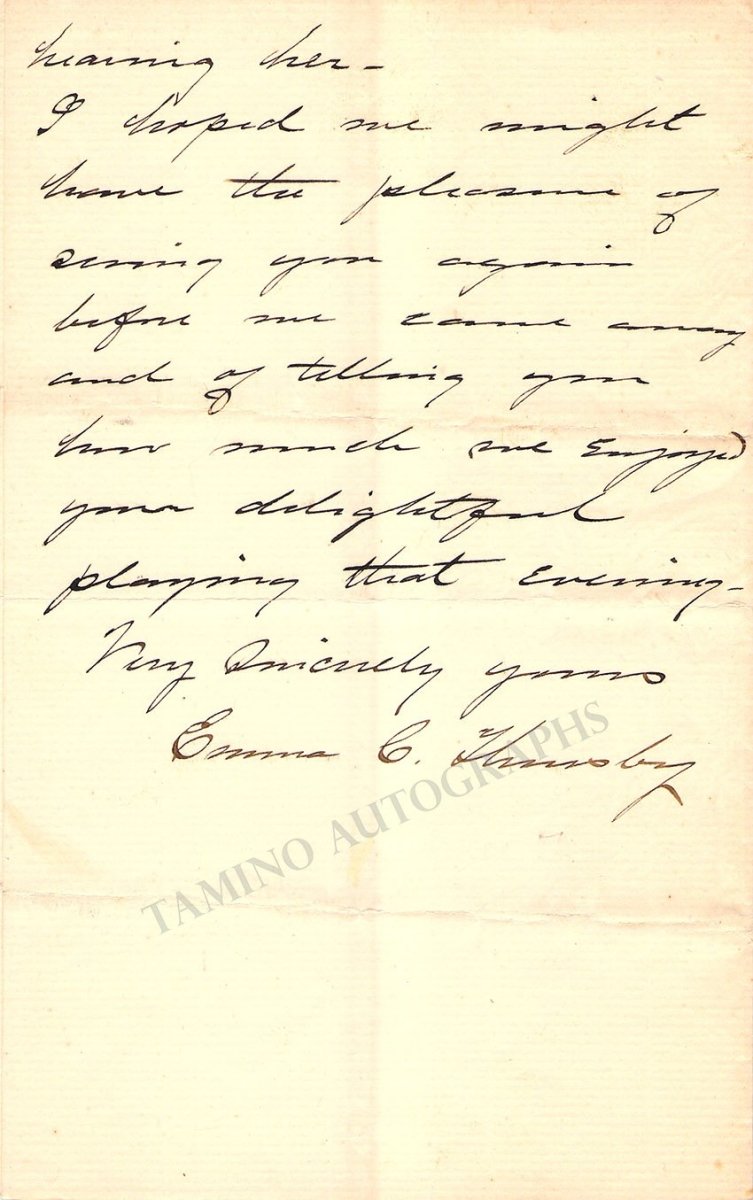 hearing her -
I hoped we might
have the pleasure of
seeing you again
before we came away
and of telling you
how much we enjoyed
your delightful
playing that evening -
Very Sincerely yours
Emma C. Thursby
TAMINO AUTOGRAPHS